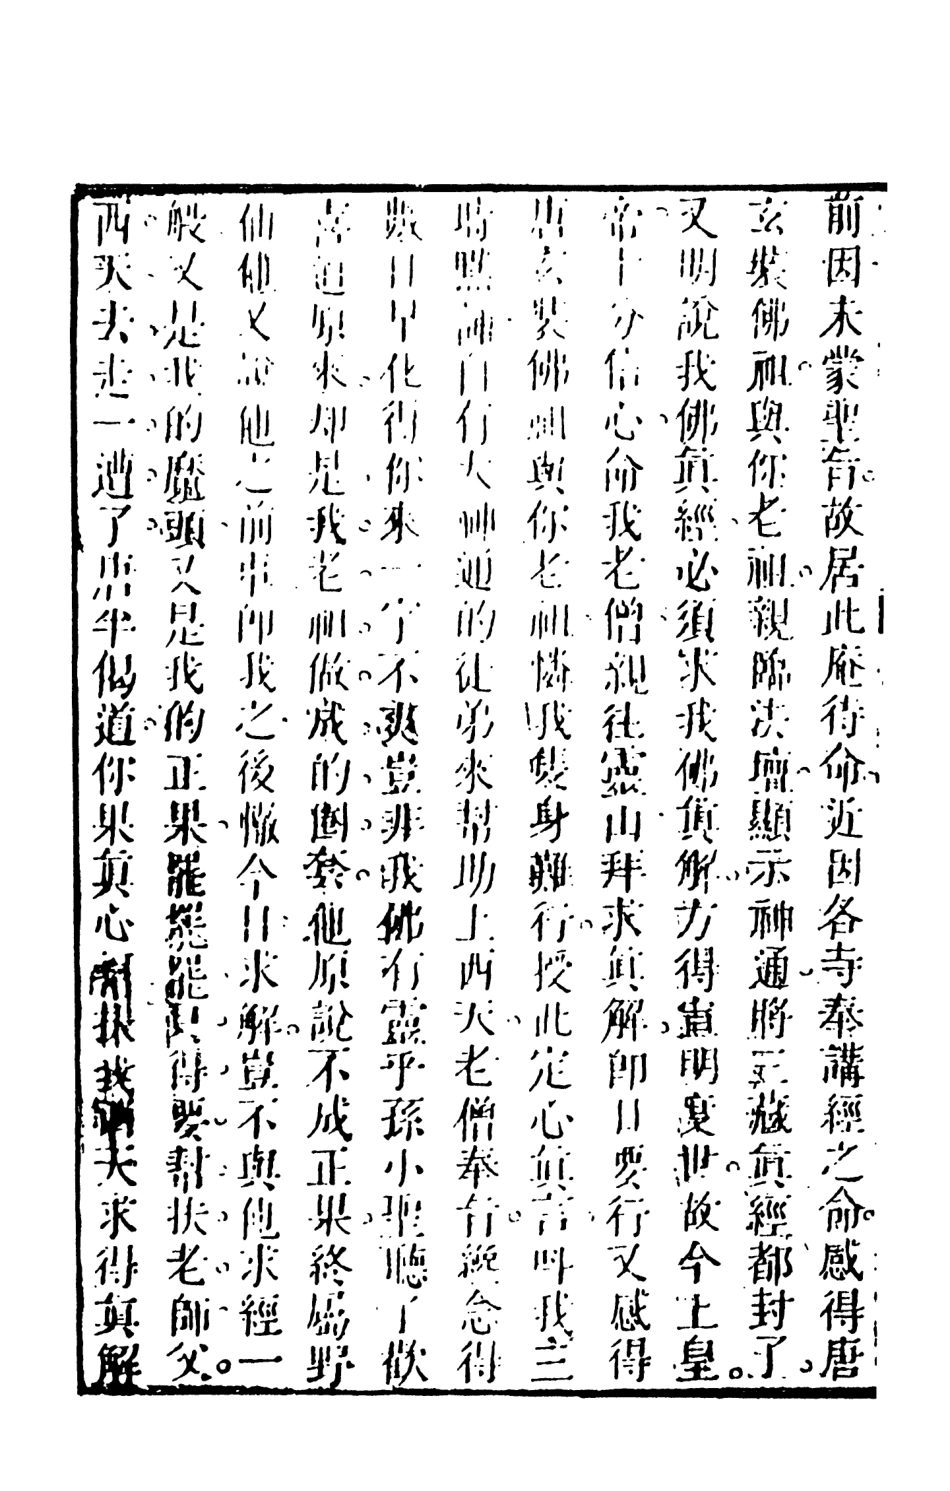 前因未蒙聖旨故居此庵待命近因各寺奉講經之命感得唐
玄奘佛祖與你老祖親臨法壇顯示神通將三藏真經都封了
又明說我佛真經必須求我佛真解方得宣明度世故今上皇
帝十分信心命我老僧親往靈山拜求真解卽日要行又感得
唐玄奘佛祖與你老祖憐我隻身難行授此定心真言呌我三
時黙誦自有大神通的徒弟來幫助上西天老僧奉旨纔念得
數日早化得你來一字不爽豈非我佛有靈乎孫小聖聽了歡
喜道原來却是我老祖做成的圈套他原說不成正果終屬野
仙他又說他之前車卽我之後轍今日求解豈不與他求經一
般又是我的魔頭又是我的正果罷罷罷只得要幫扶老師父
西天去走一遭了唐半偈道你果真心肯扶我西天求得真解